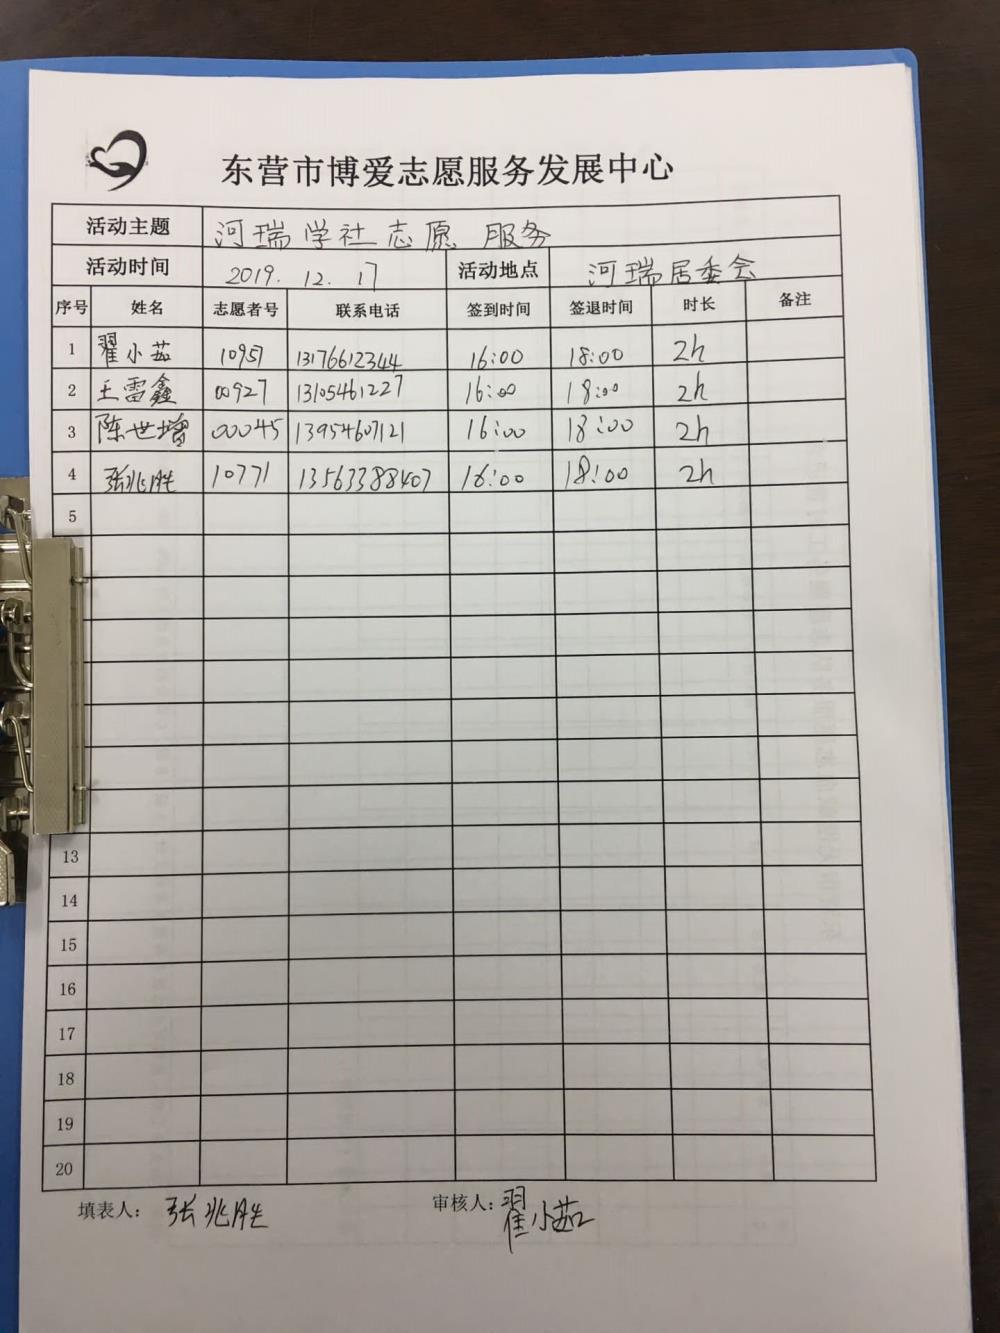 东营市博爱志愿服务发展中心
活动主题 河瑞学社志愿服务
活动时间 2019.12.17 活动地点 河瑞居委会
序号 姓名 志愿者号 联系电话 签到时间 签退时间 时长 备注
1 翟小茹 10951 13176612344 16:00 18:00 2h
2 王雷鑫 00927 13105461227 16:00 18:00 2h
3 陈世增 00045 13954607121 16:00 18:00 2h
4 张兆胜 10771 13563388407 16:00 18:00 2h
5
13
14
15
16
17
18
19
20
填表人: 张兆胜 审核人: 翟小茹